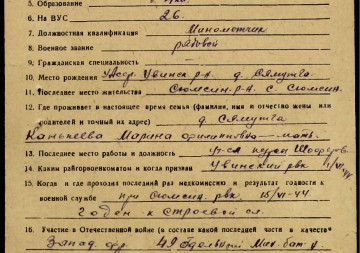 5. Образование
6. На ВУС 26.
7. Должностная квалификация Минометчик
8. Военное звание рядовой
9. Гражданская специальность
10. Место рождения УАССР Увинск р-н. д. Сямутча
11. Последнее место жительства Сюмсин. р-н с. Сюмси.
12. Где проживает в настоящее время семья (фамилия, имя и отчество жены или
родителей и точный их адрес) д. Сямутча
Канькеева Марина мать.
13. Последнее место работы и должность курсы Шоферов
14. Каким райгорвоенкоматом и когда призван Увинский рвк
15. Когда и где проходил последний раз медкомиссию и результат годности к
военной службе при Сюмсин. рвк. 15/VI-44
Годен к строевой сл.
16. Участие в Отечественной войне (в составе какой последней части в качеств
Запад. фр. 49 Отдельный Мин. бат-н